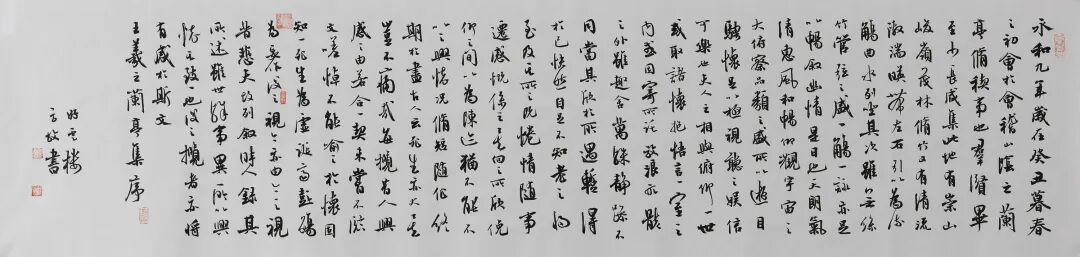 永和九年歲在癸丑暮春
之初會於會稽山陰之蘭
亭脩稧事也羣賢畢
至少長咸集此地有崇山
峻嶺茂林脩竹又有清流
激湍暎帶左右引以為流
觴曲水列坐其次雖無絲
竹管弦之盛一觴一詠亦足
以暢叙幽情是日也天朗氣
清惠風和暢仰觀宇宙之
大俯察品類之盛所以遊目
騁懷足以極視聽之娛信
可樂也夫人之相與俯仰一世
或取諸懷抱悟言一室之
內或因寄所託放浪形骸
之外雖趣舍萬殊靜躁不
同當其欣於所遇暫得
於己怏然自足不知老之將
至及其所之既惓情隨事
遷感慨係之矣向之所欣俛
仰之間以為陳迹猶不能不
以之興懷況脩短隨化終
期於盡古人云死生亦大矣
豈不痛哉每攬昔人興
感之由若合一契未嘗不臨
文嗟悼不能喻之於懷固
知一死生為虛誕齊彭殤
為妄作後之視今亦由今之視
昔悲夫故列叙時人錄其
所述雖世殊事異所以興
懷其致一也後之攬者亦將
有感於斯文
王羲之蘭亭集序
樓
書